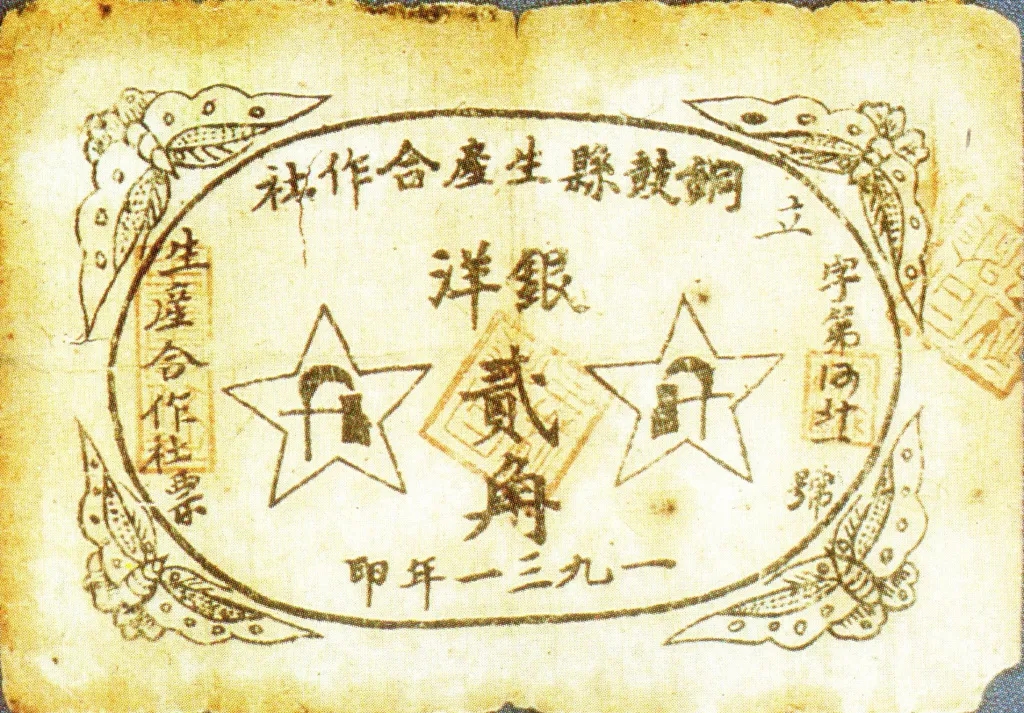 銅鼓縣生産合作社
立字第
號
銀洋
貳角
一九三一年印
生産合作社票